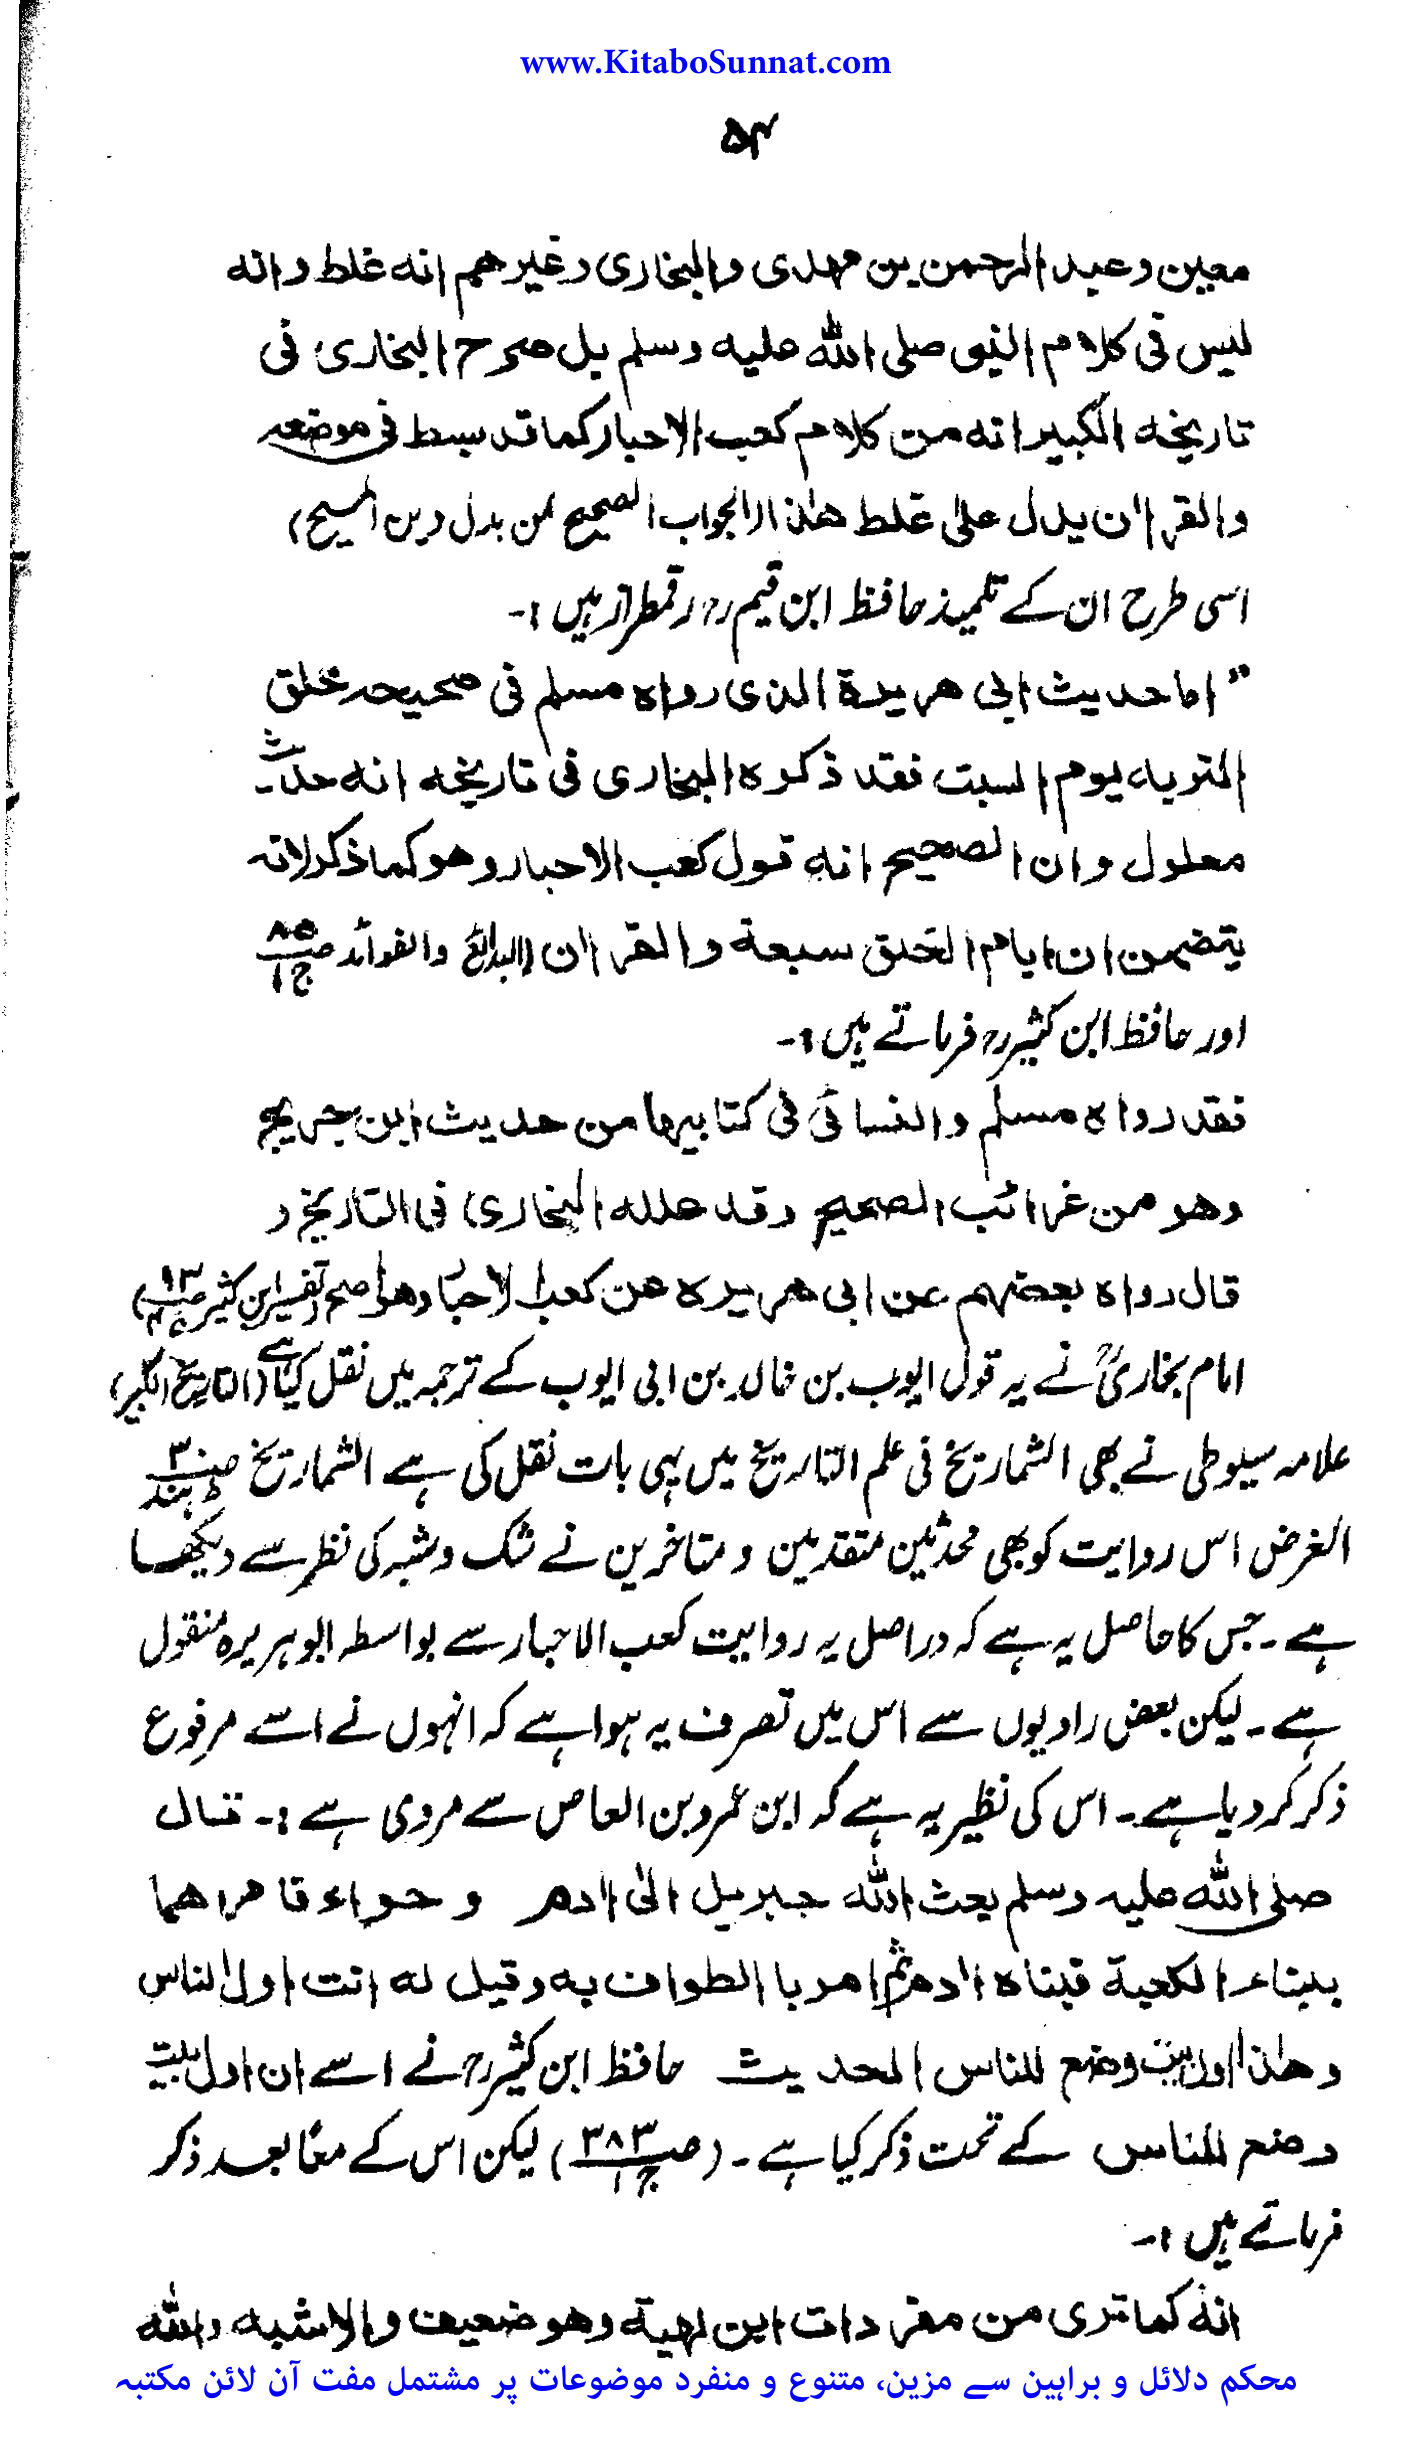 www.KitaboSunnat.com
۵۴
معين وعبد الرحمن بن مهدى والبخارى وغيرهم انه غلط وانه
ليس فى كلام النبى صلى الله عليه وسلم بل صرح البخارى فى
تاريخه الكبير انه من كلام كعب الاحبار كما قد بسط فى موضعه
والقرآن يدل على غلط هٰذا (الجواب الصحيح لمن بدل دين المسيح)
اسی طرح ان کے تلمیذ حافظ ابن قیمؒ رقمطراز ہیں :-
" اما حديث ابى هريرة الذى رواه مسلم فى صحيحه خلق
التربه يوم السبت فقد ذكره البخارى فى تاريخه انه حديث
معلول وان الصحيح انه قول كعب الاحبار وهو كما ذكر لانه
يتضمن ان ايام التخلق سبعة والقرآن (البدائع والفوائد صـ ۸۵ ج ۱
اور حافظ ابن کثیرؒ فرماتے ہیں :-
فقد رواه مسلم والنسائى فى كتابيهما من حديث ابن جريج
وهو من غرائب الصحيح وقد علله البخارى فى التاريخ و
قال رواه بعضهم عن ابى هريره عن كعب الاحبار وهو اصح (تفسیر ابن کثیر صـ ۹۴ ج ۴)
امام بخاریؒ نے یہ قول ایوب بن خالد بن ابی ایوب کے ترجمہ میں نقل کیا ہے (التاریخ الکبیر)
علامہ سیوطی نے بھی الشماریخ فی علم التاریخ میں یہی بات نقل کی ہے الشماریخ صـ ۳ ط ہند
الغرض اس روایت کو بھی محدثین متقدمین و متاخرین نے شک و شبہ کی نظر سے دیکھا
ہے ۔ جس کا حاصل یہ ہے کہ دراصل یہ روایت کعب الاحبار سے بواسطہ ابوہریرہ منقول
ہے ۔ لیکن بعض راویوں سے اس میں تصرف یہ ہوا ہے کہ انہوں نے اسے مرفوع
ذکر کر دیا ہے ۔ اس کی نظیر یہ ہے کہ ابن عمرو بن العاص سے مروی ہے :- قال
صلى الله عليه وسلم بعث الله جبريل الىٰ اٰدم وحواء فامراهما
ببناء الكعبة فبناه اٰدم ثم امر بالطواف به وقيل له انت اول الناس
وهٰذا اول بيت وضع للناس الحديث حافظ ابن کثیرؒ نے اسے ان اول بیت
وضع للناس کے تحت ذکر کیا ہے ۔ (صـ ۳۸۳ ج ۱) لیکن اس کے معًا بعد ذکر
فرماتے ہیں :-
انه كما ترى من مفردات ابن لهيعة وهو ضعيف والاشبه والله
محکم دلائل و براہین سے مزین، متنوع و منفرد موضوعات پر مشتمل مفت آن لائن مکتبہ